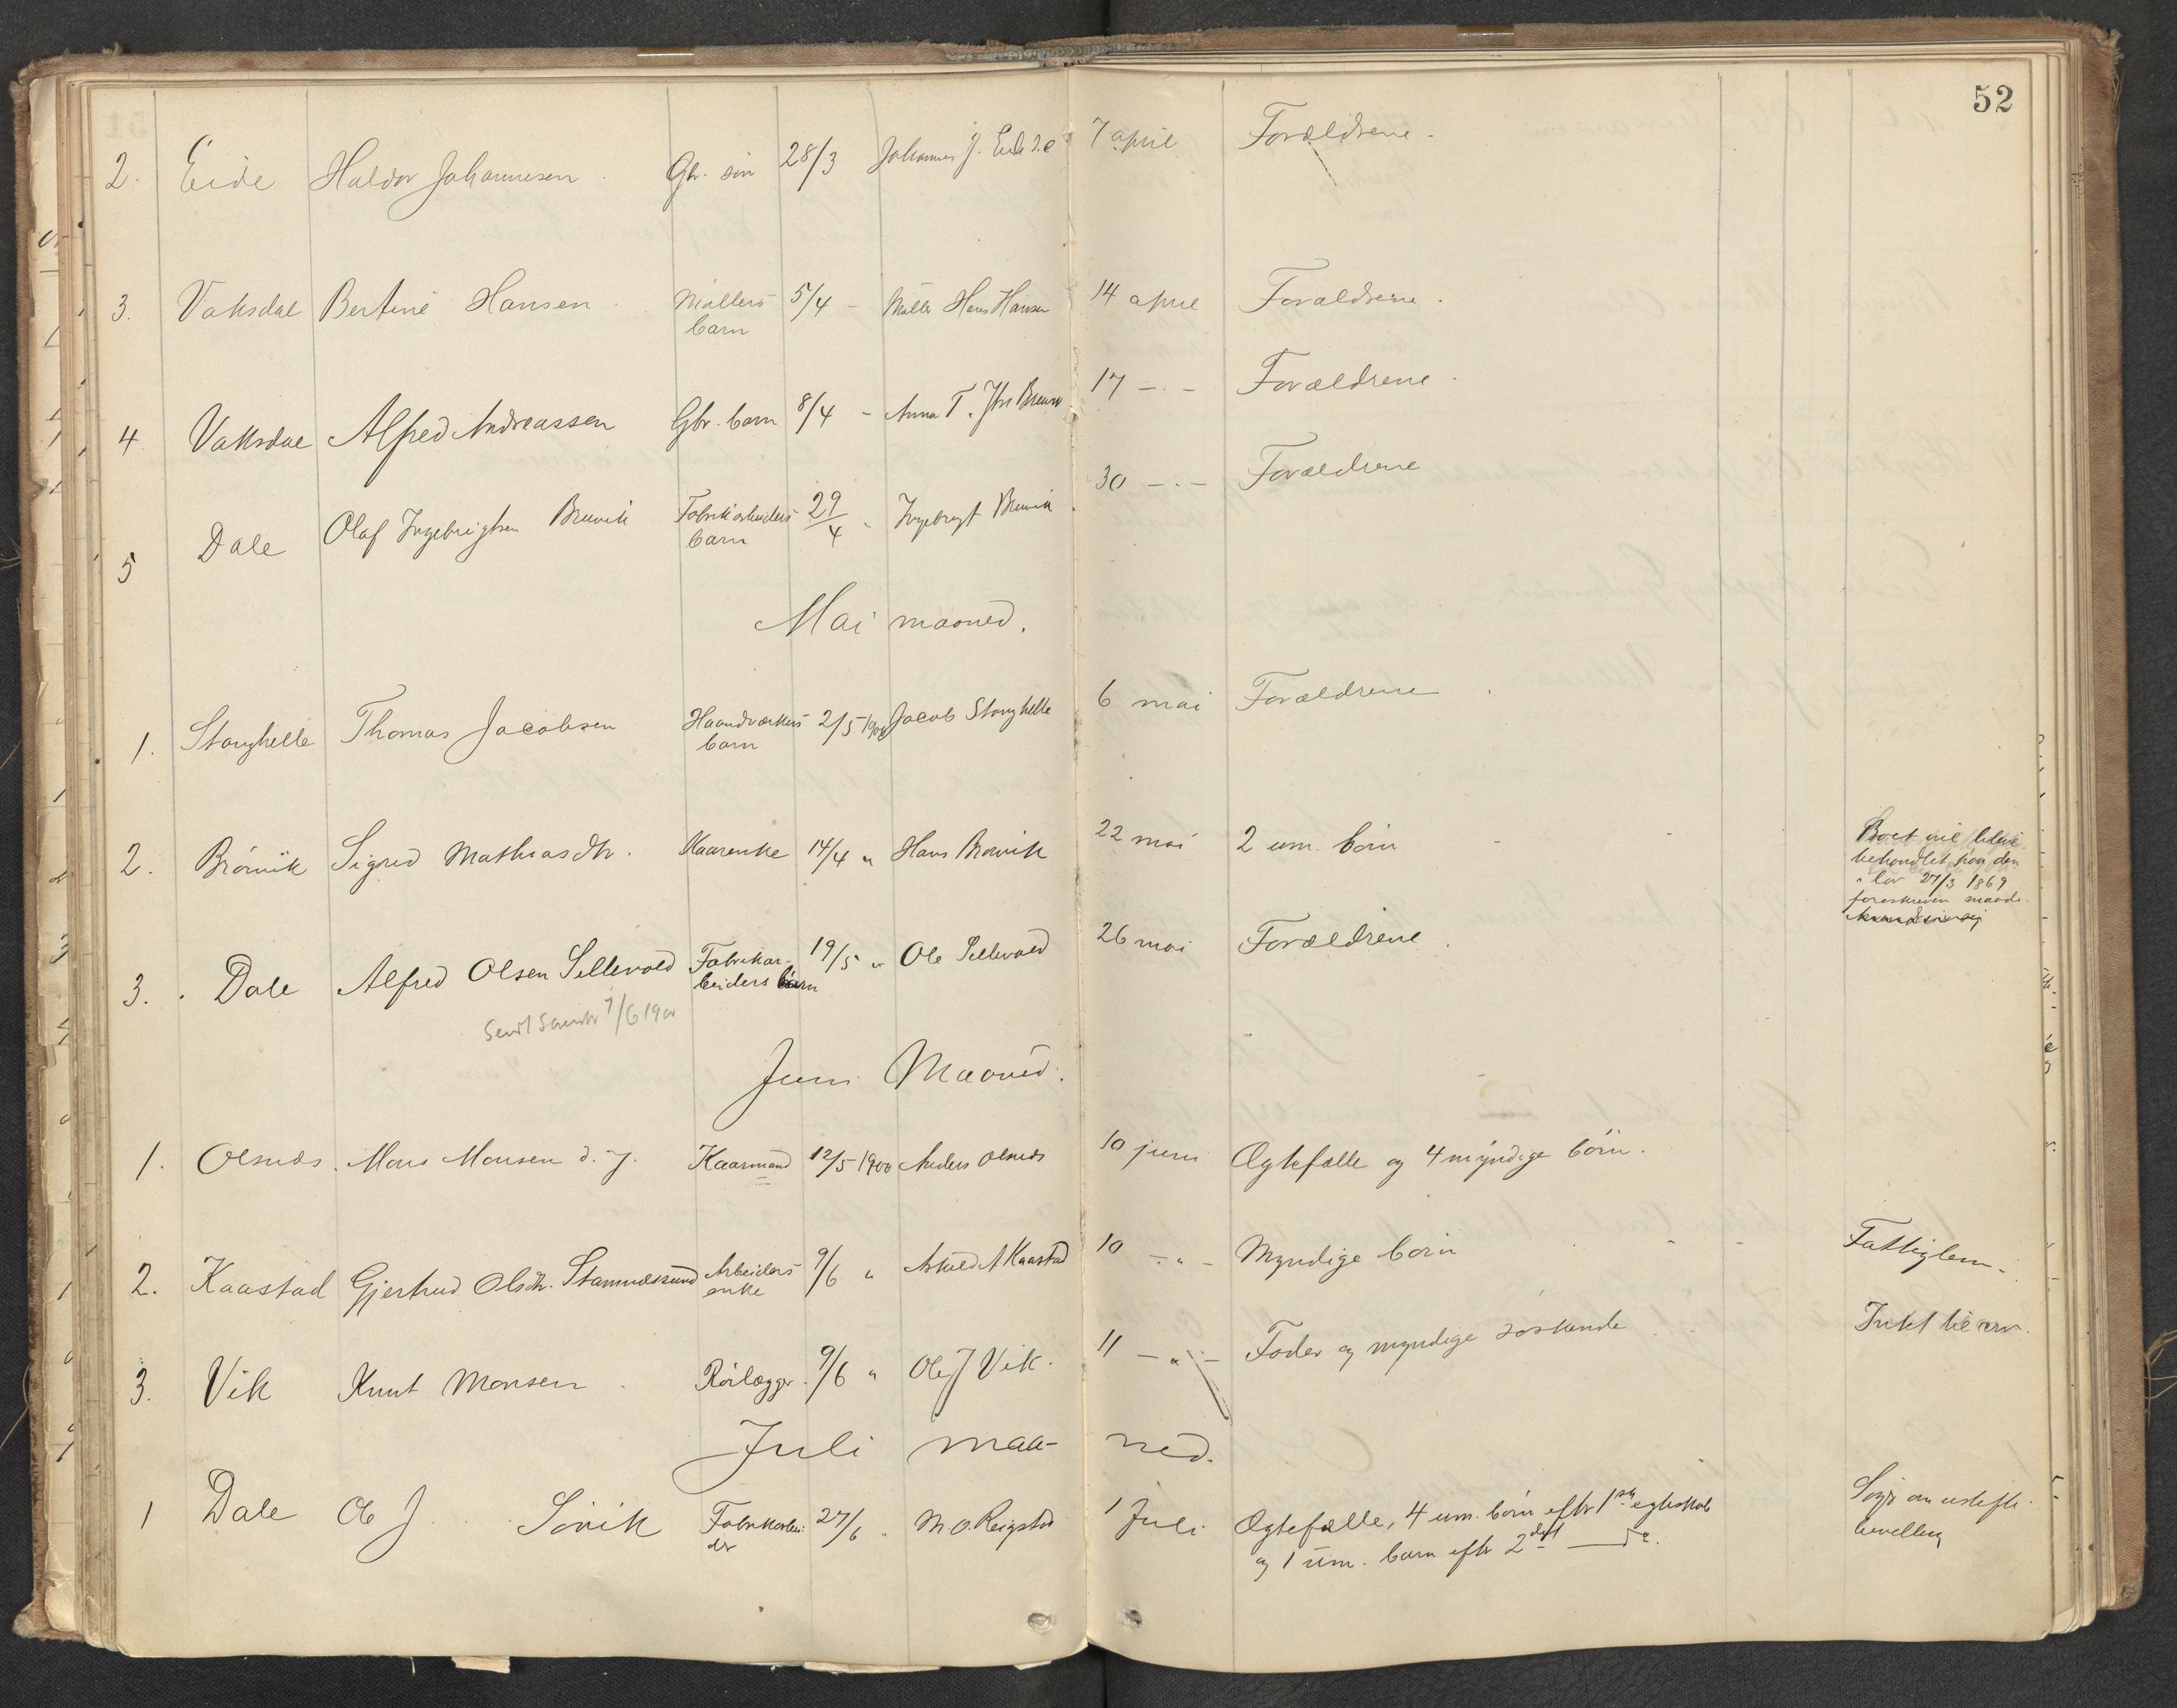 52
2. Eide Haldor Johannesen Gbr. søn 28/3 Johannes J. Eide 7 april Forældrene
3. Vaksdal Bertine Hansen Møllers 5/4 - Møller Hans Hansen 14 april Forældrene
barn
4 Vaksdal Alfred Andreassen Gbr. barn 8/4 - Anna T. 17 - - Forældrene
5 Dale Olaf Ingebrigtsen Bruvik Fabrikarbeiders 29/4 " Ingebrigt Bruvik 30 - - Forældrene
barn
Mai maaned.
1. Stanghelle Thomas Jacobsen Haandværkers 2/5 1900 Jacob Stanghelle 6 mai Forældrene
barn
2. Brørvik Sigrid Mathiasdtr. Kaarenke 14/4 " Hans Brørvik 22 mai 2 um. børn
Boet vil blive
behandlet paa den
i lov 27/3 1869
foreskreven maade.
3. Dale Alfred Olsen Sellevold Fabrikar- 19/5 " Ole Sellevold 26 mai Forældrene
beiders barn
Sendt 7/6 1900
Juni Maaned.
1. Olsnæs Mons Monsen d. y. Kaarmand 12/5 1900 Anders Olsnæs 10 juni Ægtefælle og 4 myndige børn.
2. Kaastad Gjertrud Olsdtr. Stamnæssund Arbeiders 9/6 " A Kaastad 10 - " - Myndige børn Fattiglem.
enke
3. Vik Knut Monsen Rørlægger 9/6 " Ole J Vik. 11 - " - Fader og myndige søskende Intet til arv.
Juli maa- ned.
1 Dale Ole J. Sørvik Fabrikarbei- 27/6 " M. O. Reigstad 1 Juli Ægtefælle, 4 um. børn efter 1ste egteskab
der og 1 um. barn efter 2det do.
Søgt om uskifte-
bevilling